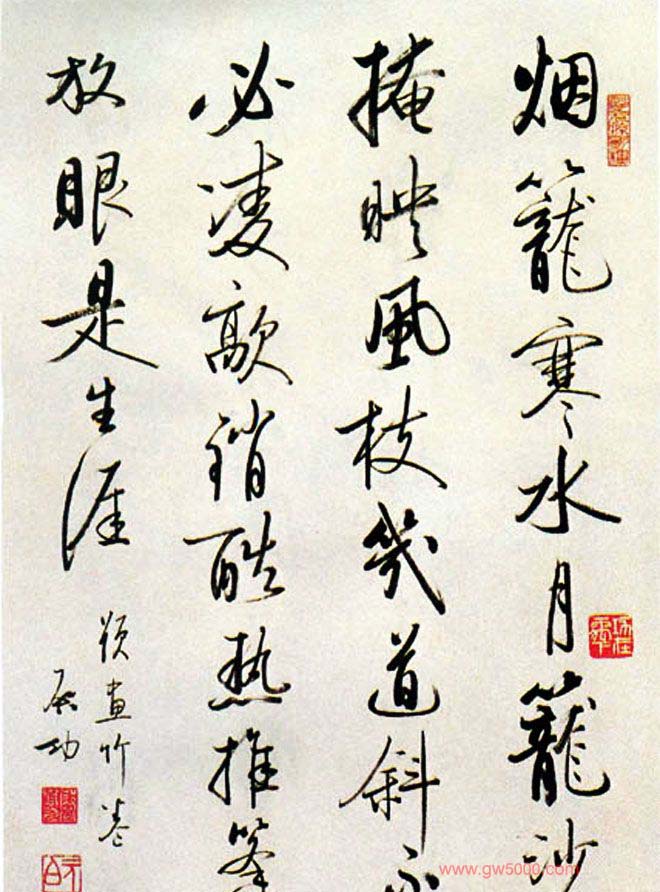 烟籠寒水月籠沙
掩映風枝幾道斜不
必凌歊銷酷热推篷
放眼是生涯
題畫竹卷
启功
www.gw5000.com